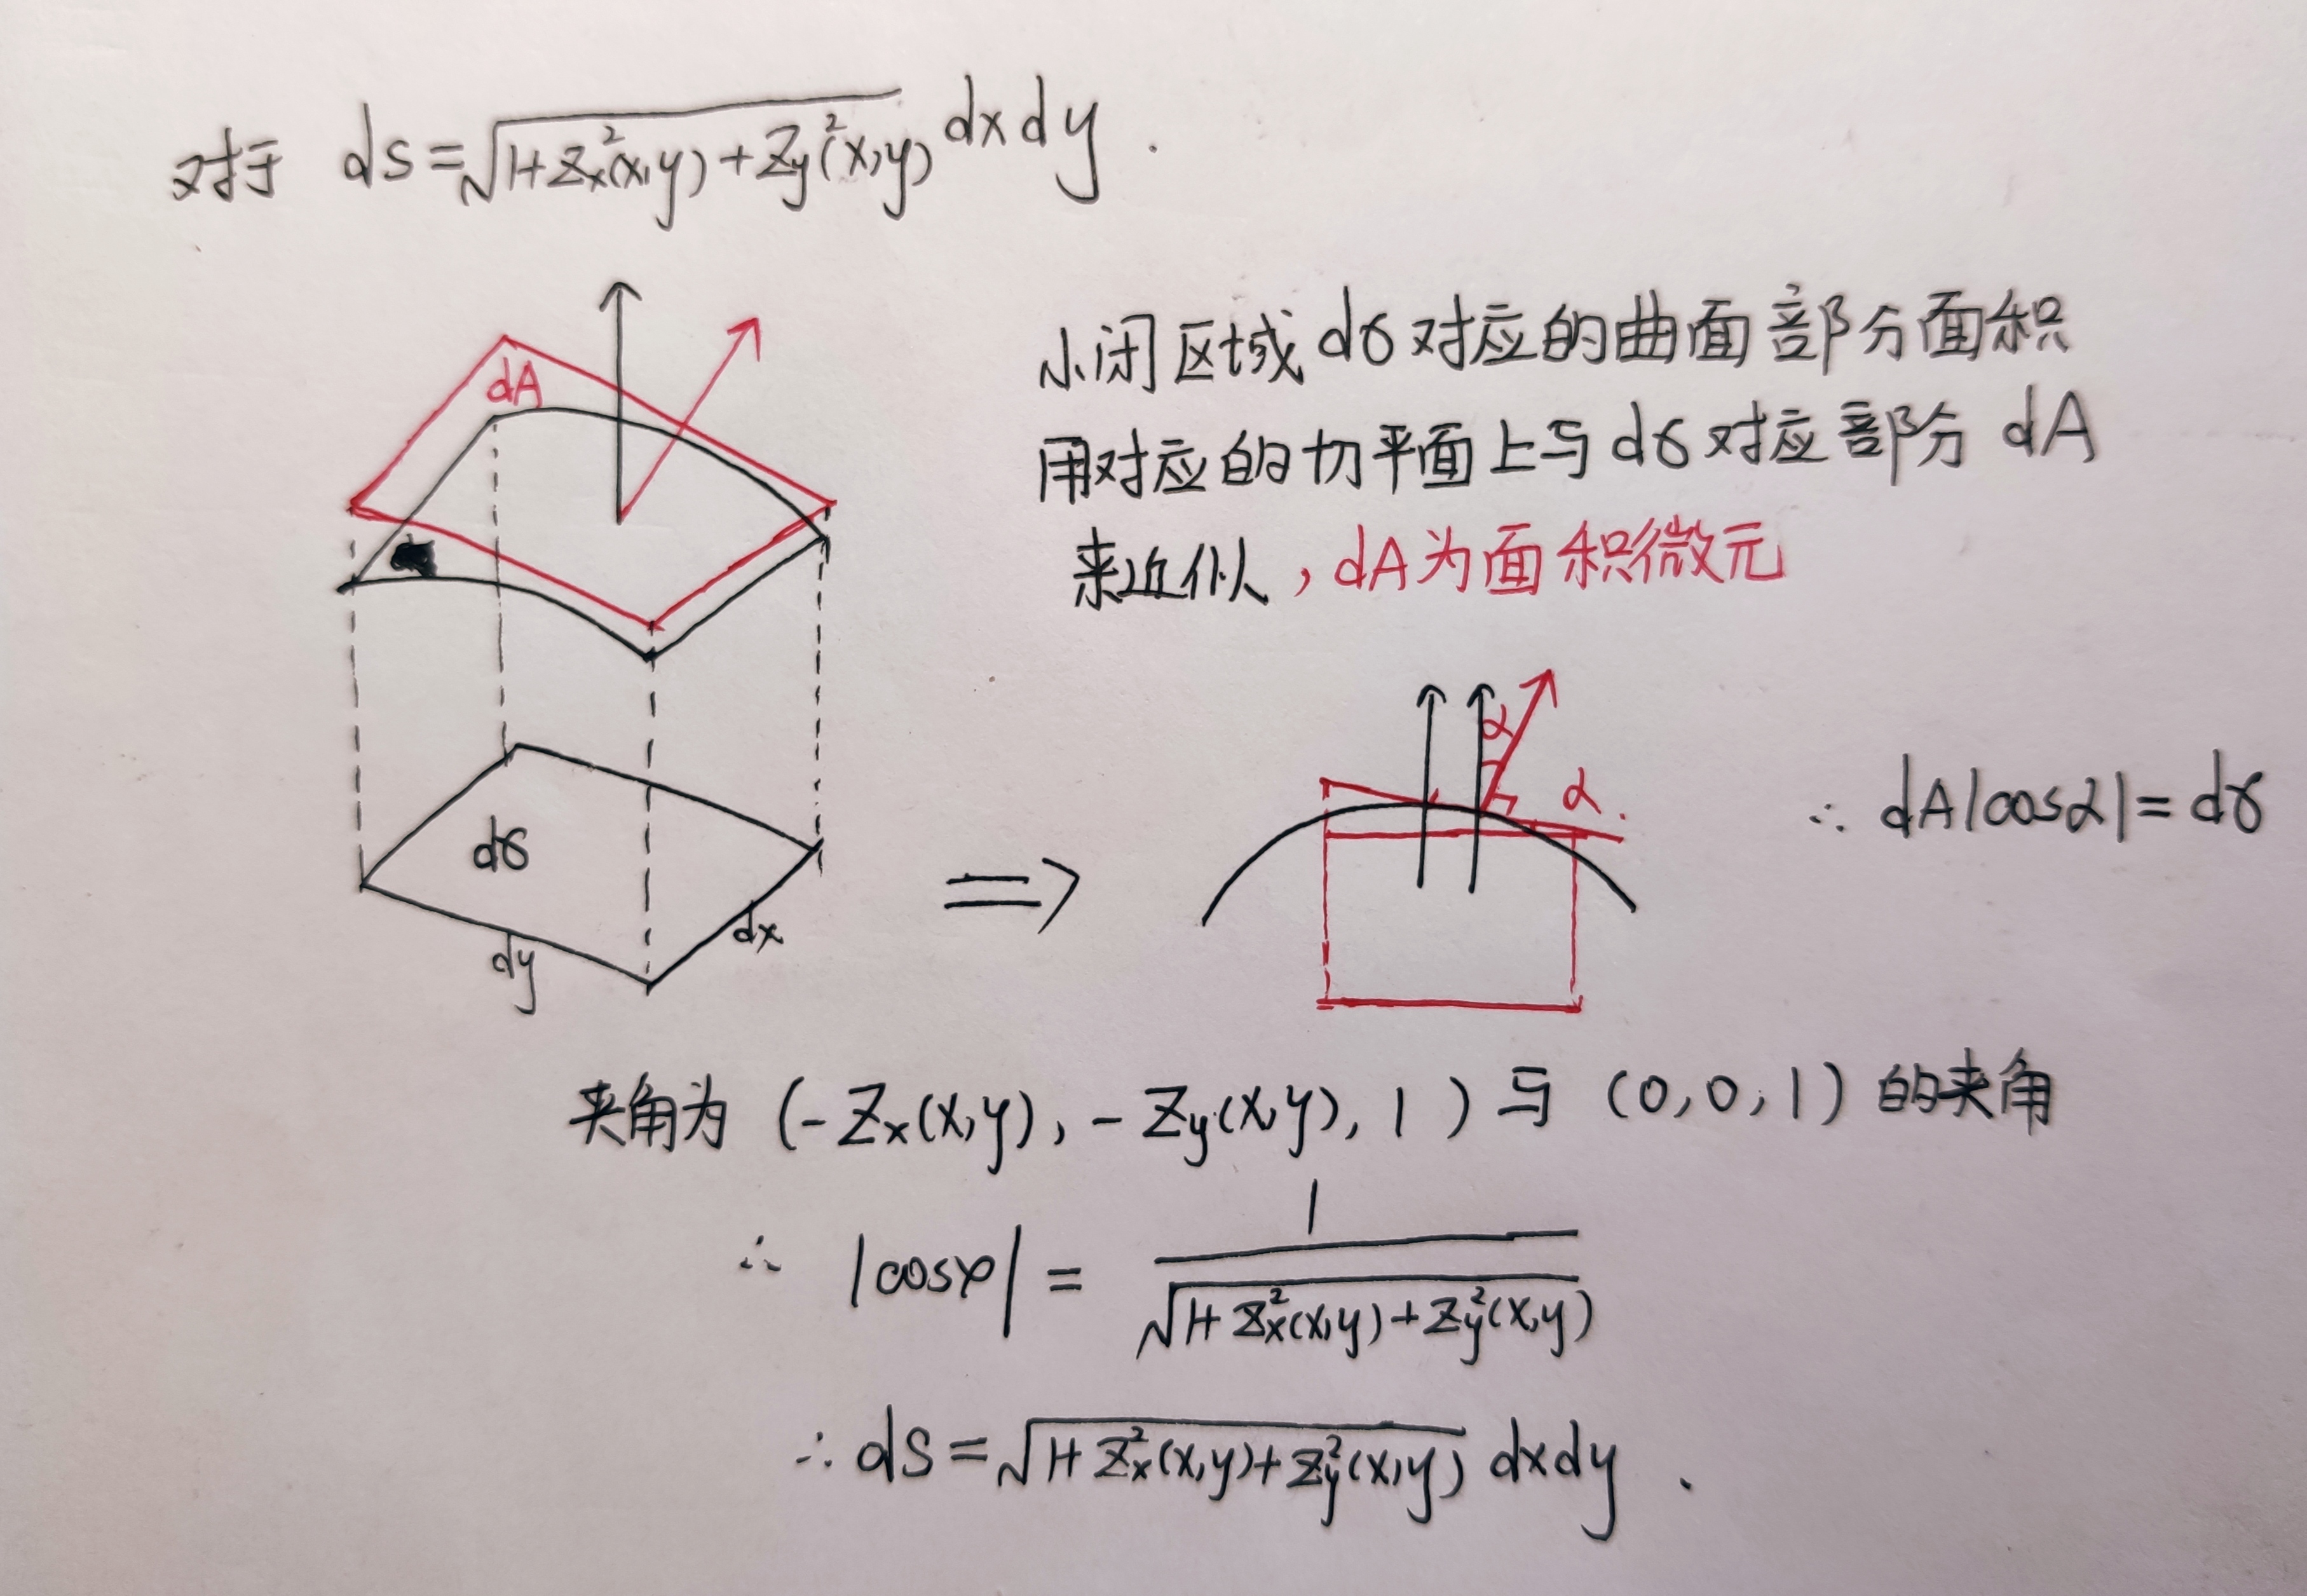 对于 ds=√(1+Zx²(x,y)+Zy²(x,y)) dxdy.
dA
小闭区域dσ对应的曲面部分面积
用对应的切平面上与dσ对应部分dA
来近似,dA为面积微元
dσ
dy
dx
⇒
α
α.
∴ dA|cosα|=dσ
夹角为 (-Zx(x,y), -Zy(x,y), 1) 与 (0,0,1) 的夹角
∴ |cosφ| = 1/√(1+Zx²(x,y)+Zy²(x,y))
∴ dS=√(1+Zx²(x,y)+Zy²(x,y)) dxdy.